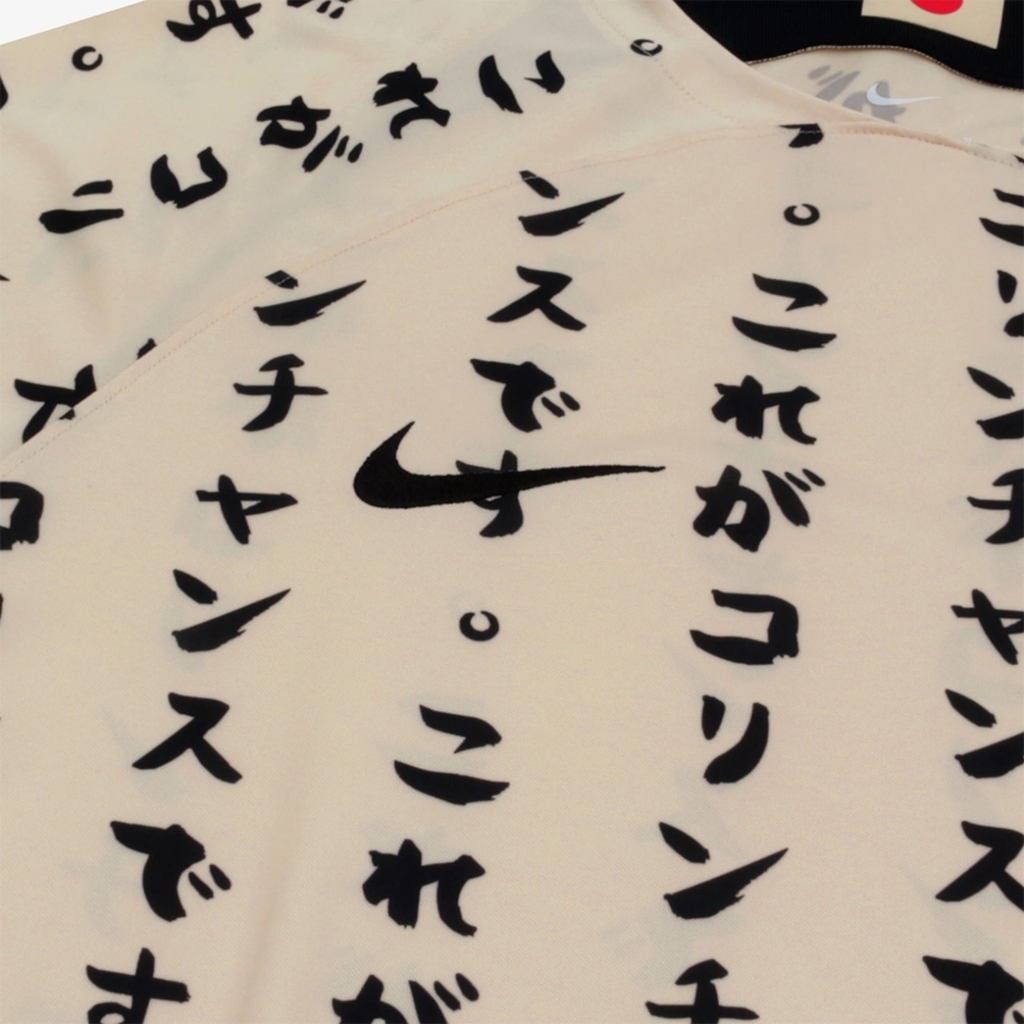 コリンチャンスで
。これがコリンチ
ンスです。これが
ンチャンスです
。これがコリ
す。
ス